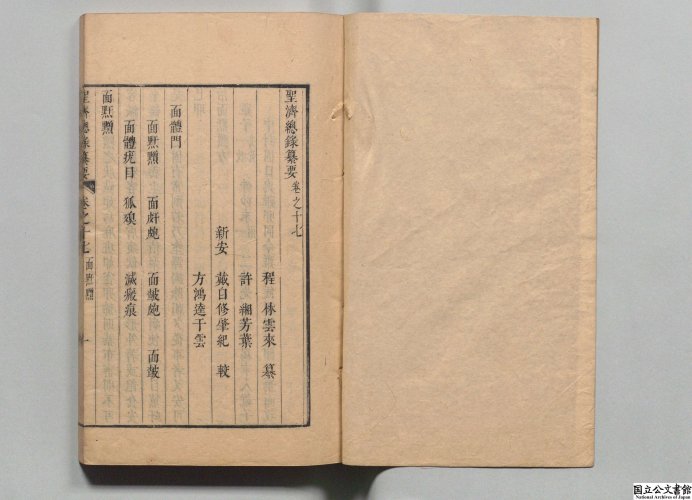 聖濟總錄纂要 卷之十七
程 林雲來 纂
許 緗芳葉
新安 戴自修肇紀 較
方鴻逵干雲
面體門
面䵟䵳 面皯皰 面皶皰 面皶
面體疣目 狐臭 滅瘢痕
面䵟䵳
聖濟總錄纂要 卷之十七 面䵟䵳 一
国立公文書館
National Archives of Japan